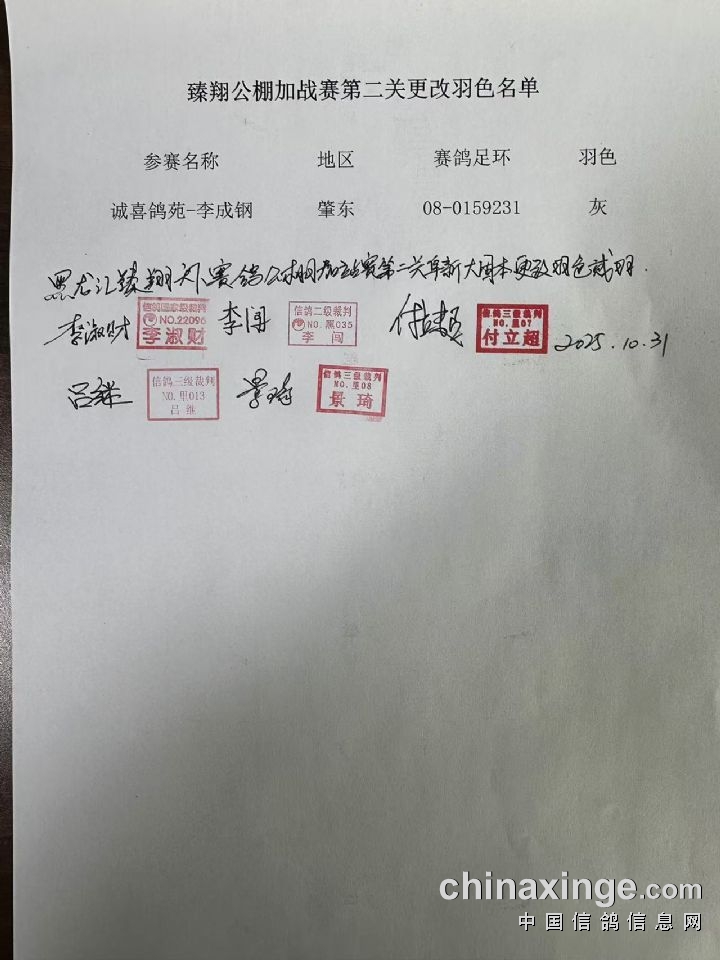 臻翔公棚加战赛第二关更改羽色名单
参赛名称 地区 赛鸽足环 羽色
诚喜鸽苑-李成钢 肇东 08-0159231 灰
黑龙江臻翔 赛鸽公棚加站赛第二关阜新大周本更改羽色 羽.
李淑财 信鸽国家级裁判 NO.22096 李淑财
李闯 信鸽二级裁判 NO.黑035 李闯
付立超 信鸽三级裁判 NO.黑07 付立超
2025.10.31
吕继 信鸽三级裁判 NO.黑013 吕继
景琦 信鸽三级裁判 NO.黑08 景琦
chinaxinge.com
中国信鸽信息网